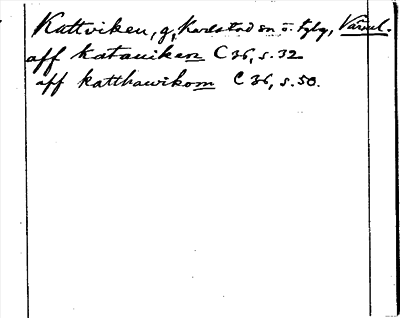 Kattviken, g, Karlstad sn o. tg, Värml.
aff katauiken C 36, s. 32
aff katthawikom C 36, s. 50.